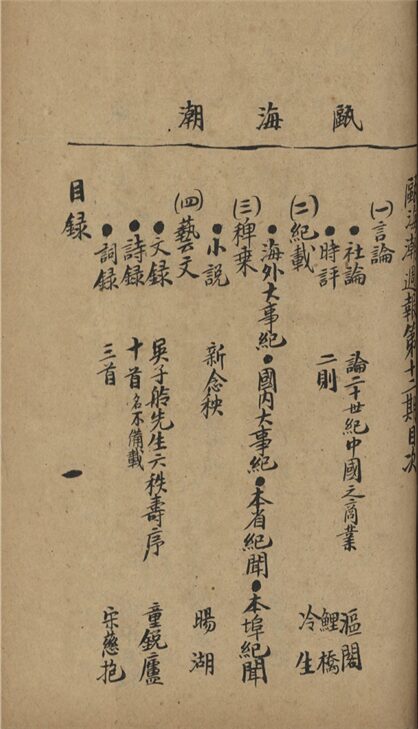 甌海潮
甌海潮週報第十期目次
(一)言論
●社論 論二十世紀中國之商業 漚閣
●時評 二則 鯉橋 冷生
(二)紀載
●海外大事紀●國內大事紀●本省紀聞●本埠紀聞
(三)稗乗
●小説 新念秧 暘湖
(四)藝文
●文録 吳子舲先生六秩壽序 童鋭廬
●詩録 十首名不備載
●詞録 三首 宋慈抱
目録